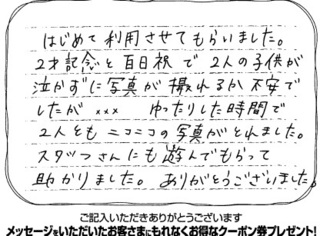 はじめて利用させてもらいました。
2才記念と百日祝で2人の子供が
泣かずに写真が撮れるか不安で
したが ××× ゆったりした時間で
2人ともニコニコの写真がとれました。
スタッフさんにも遊んでもらって
助かりました。ありがとうございました。
ご記入いただきありがとうございます
メッセージをいただいたお客さまにもれなくお得なクーポン券プレゼント!